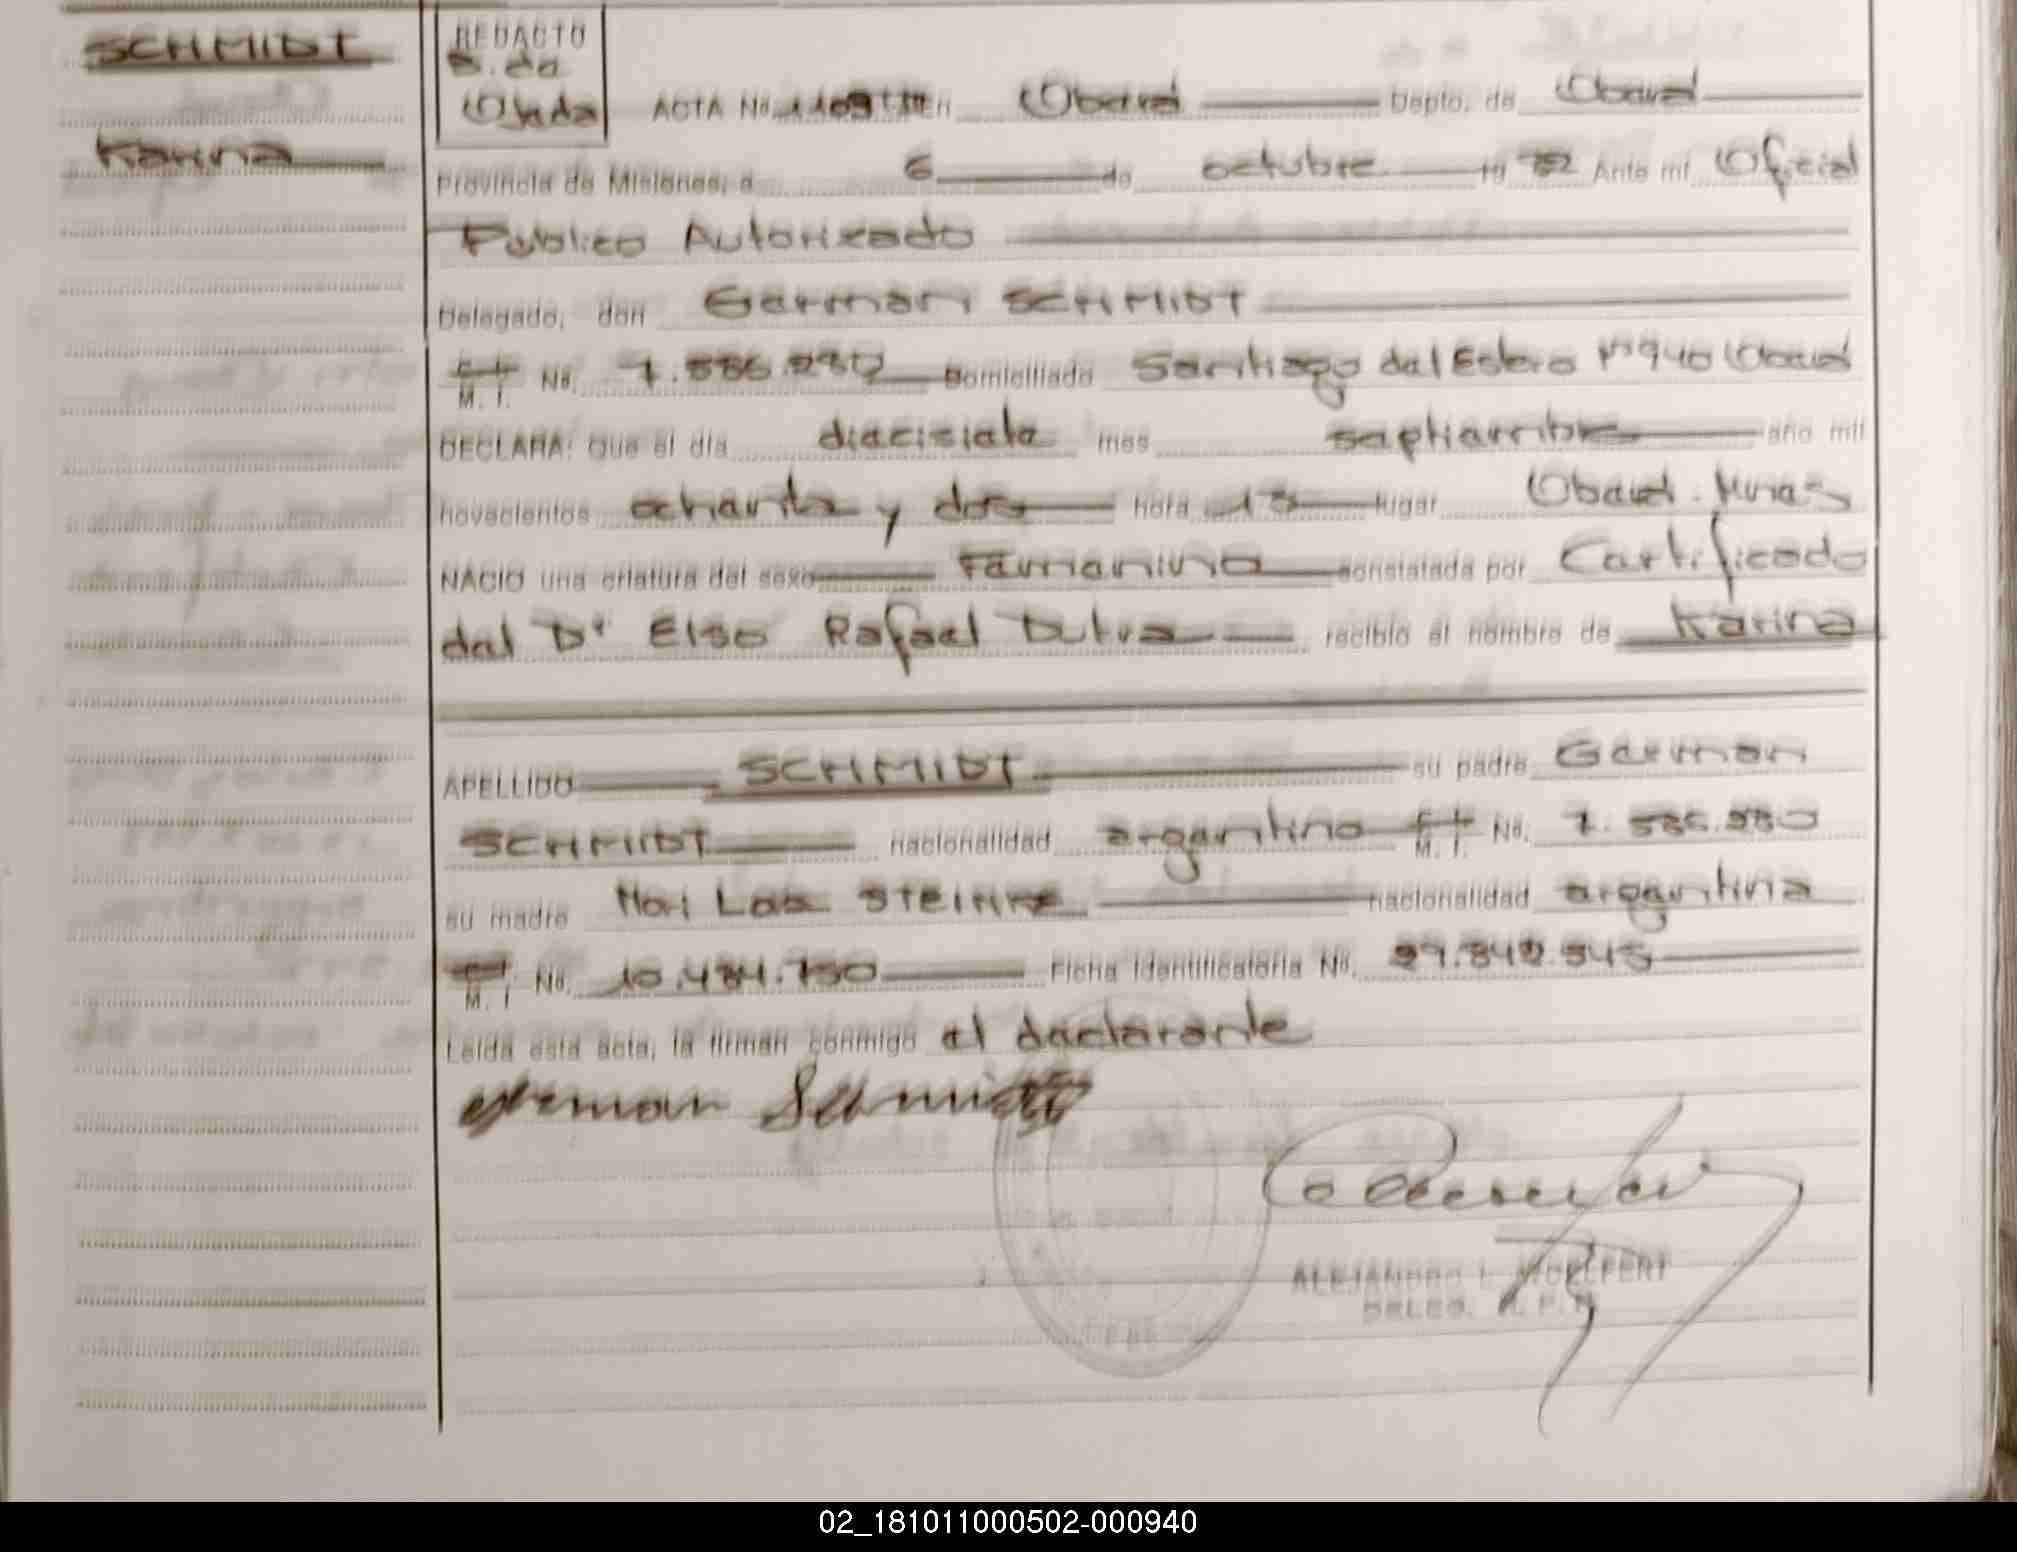 SCHMIDT
Karina
REDACTO
D. de
Ojeda
ACTA No. EN Oberá Depto. de Oberá
Provincia de Misiones, a 6 de octubre 19 82 Ante mí Oficial
Público Autorizado
Delegado, don German SCHMIDT
M. I. No. Domiciliado Santiago del Estero Nº 940 Oberá
DECLARA: Que el día diecisiete mes septiembre año mil
novecientos ochenta y dos hora 13 lugar Oberá - Mnes
NACIO una criatura del sexo Femenino constatada por Certificado
del Dr Elso Rafael Dutra recibió el nombre de Karina
APELLIDO SCHMIDT su padre German
SCHMIDT nacionalidad argentino M. I. No.
su madre nacionalidad argentina
M. I No. Ficha Identificatoria No.
Leída esta acta, la firman conmigo el declarante
German Schmidt
ALEJANDRO
DELEG. R. P.
02_181011000502-000940